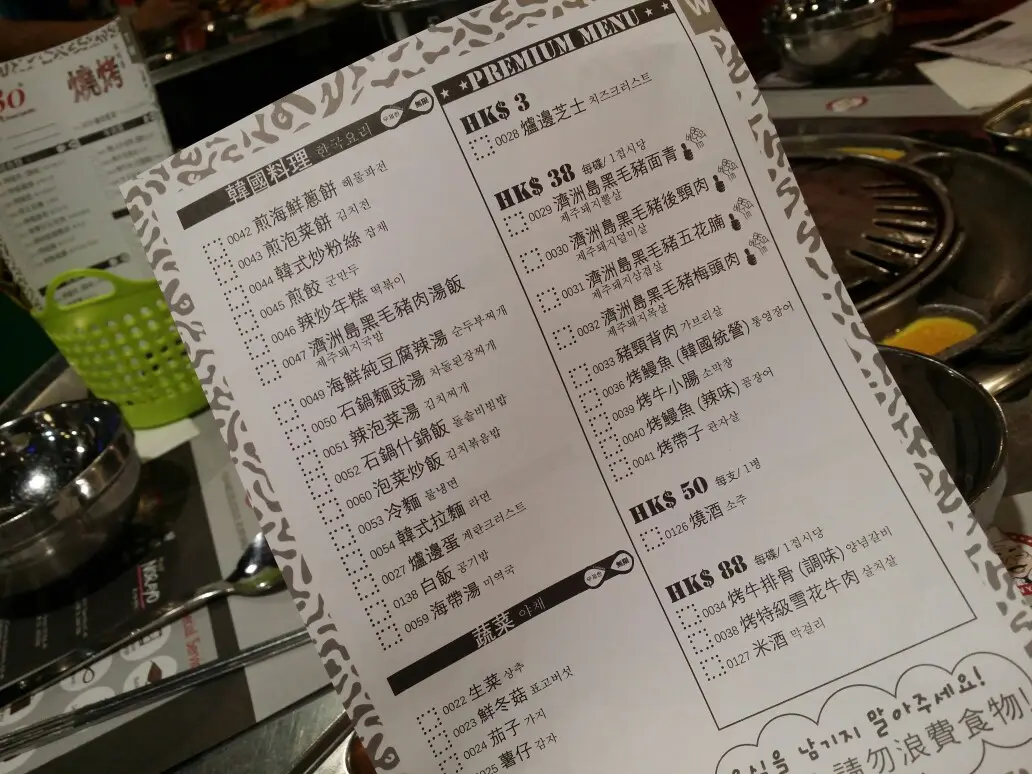 燒烤
韓國料理 한국요리
0042 煎海鮮蔥餅 해물파전
0043 煎泡菜餅 김치전
0044 韓式炒粉絲 잡채
0045 煎餃 군만두
0046 辣炒年糕 떡볶이
0047 濟洲島黑毛豬肉湯飯
제주돼지국밥
0049 海鮮純豆腐辣湯 순두부찌개
0050 石鍋麵豉湯 차돌된장찌개
0051 辣泡菜湯 김치찌개
0052 石鍋什錦飯 돌솥비빔밥
0060 泡菜炒飯 김치볶음밥
0053 冷麵 물냉면
0054 韓式拉麵 라면
0027 爐邊蛋 계란크러스트
0138 白飯 공기밥
0059 海帶湯 미역국
蔬菜 야채
0022 生菜 상추
0023 鮮冬菇 표고버섯
0024 茄子 가지
0025 薯仔 감자
★ ★PREMIUM MENU★ ★
HK$ 3
0028 爐邊芝士 치즈크러스트
HK$ 38 每碟/ 1접시당
0029 濟洲島黑毛豬面青
제주돼지뽈살
0030 濟洲島黑毛豬後頸肉
제주돼지덜미살
0031 濟洲島黑毛豬五花腩
제주돼지삼겹살
0032 濟洲島黑毛豬梅頭肉
제주돼지목살
0033 豬頸背肉 가브리살
0036 烤鰻魚 (韓國統營) 통영장어
0039 烤牛小腸 소막창
0040 烤鰻魚 (辣味) 꼼장어
0041 烤帶子 관자살
HK$ 50 每支/ 1병
0126 燒酒 소주
HK$ 88 每碟/ 1접시당
0034 烤牛排骨 (調味) 양념갈비
0038 烤特級雪花牛肉 살치살
0127 米酒 막걸리
음식을 남기지 말아주세요!
請勿浪費食物!